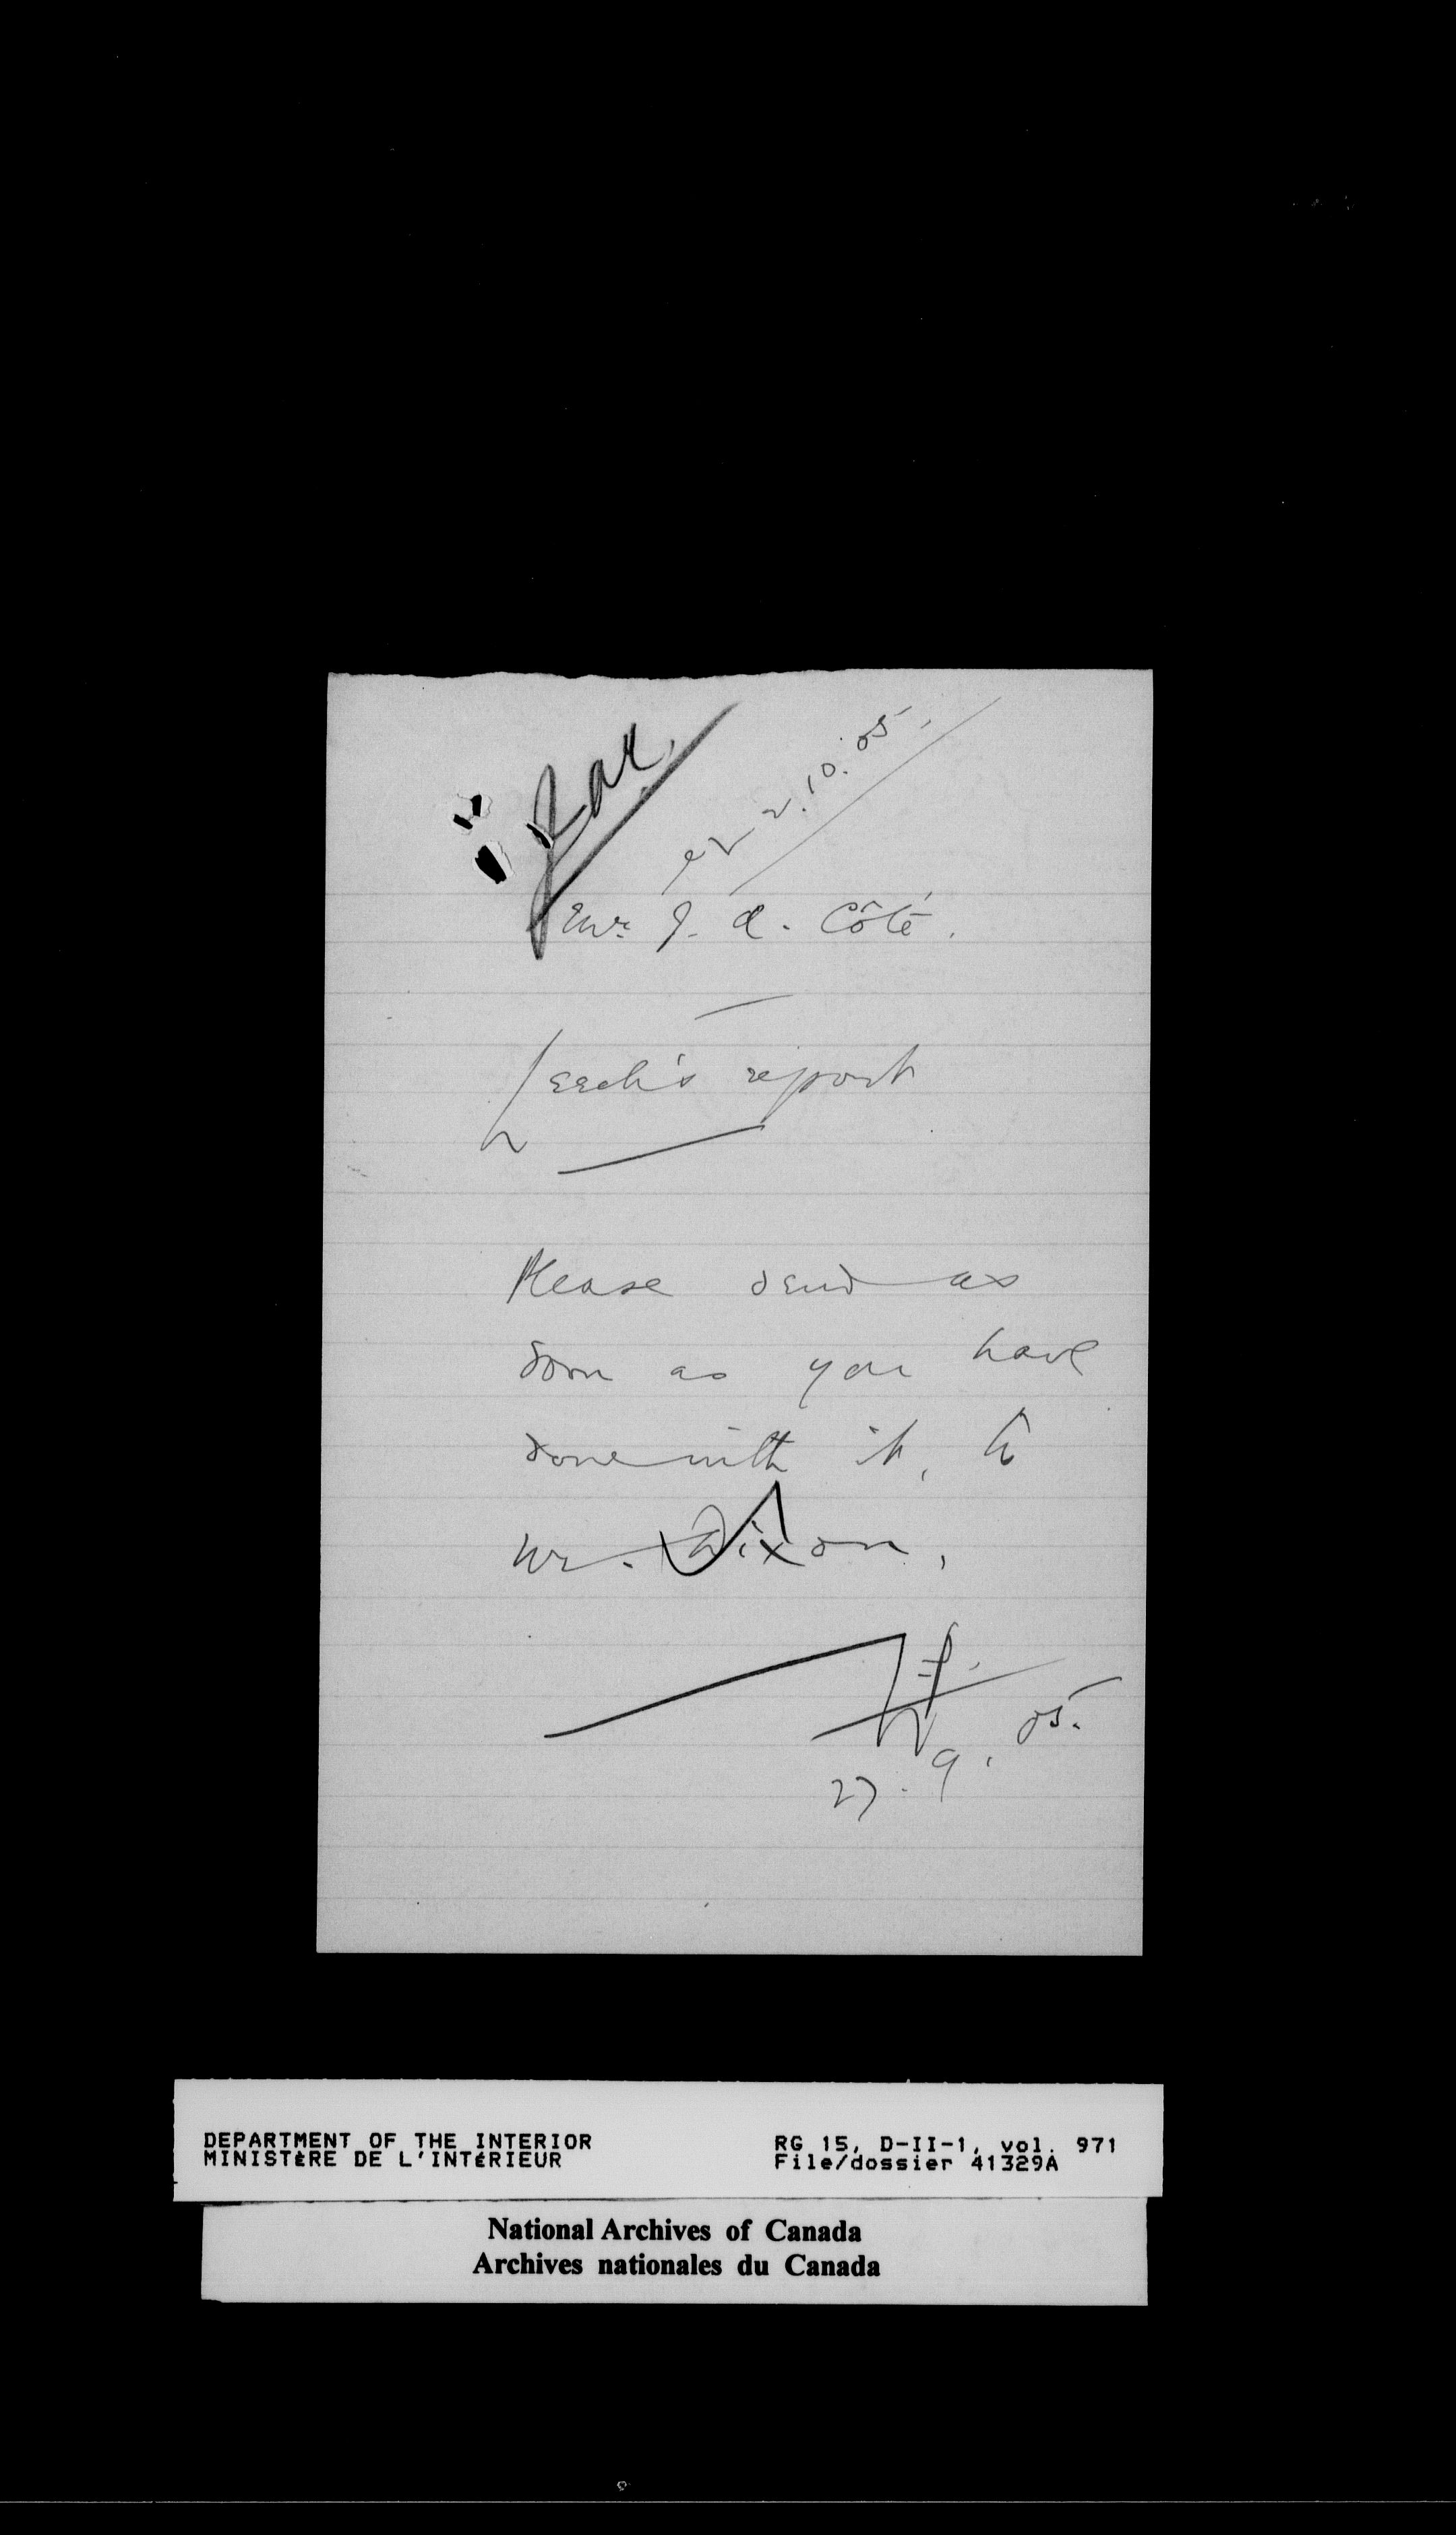 2.10.05.
Mr. J. A. Côté.
Leech's report
Please send as
soon as you have
done with it, to
Mr. Dixon,
27.9.05.
DEPARTMENT OF THE INTERIOR
MINISTÈRE DE L'INTÉRIEUR
RG 15, D-II-1, vol. 971
File/dossier 41329A
National Archives of Canada
Archives nationales du Canada